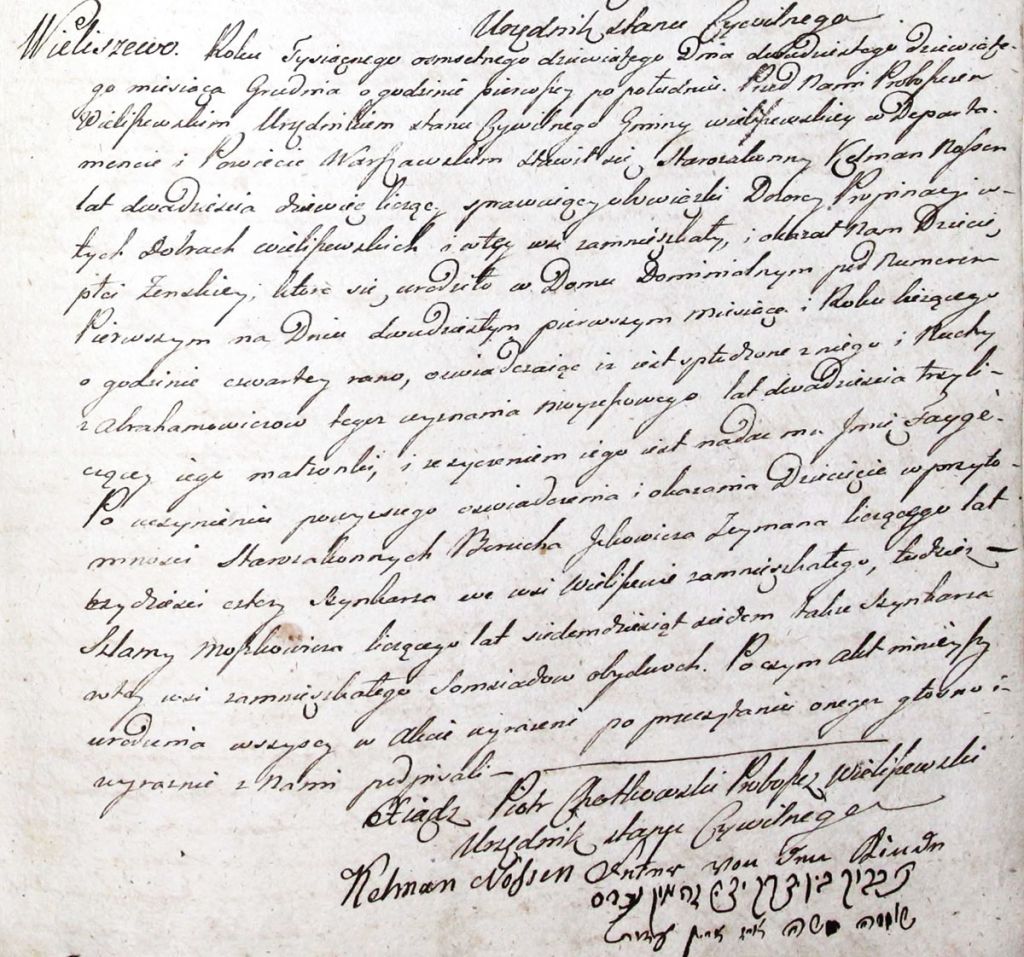 Urzędnik stanu Cywilnego
Wieliszewo. Roku Tysiącnego osmsetnego dziewiątego Dnia dwudziestego dziewiąte-
go miesiąca Grudnia o godzinie pierwszey po południu. Przed Nami Proboszczem
Wieliszewskim Urzędnikiem stanu Cywilnego Gminy wieliszewskiey w Departa-
mencie i Powiecie Warszawskim stawił się Starozakonny Kelman Nossen
lat dwadziescia dziewięć liczący, sprawuiący obowiązki Dozorcy Propinacyi w
tych dobrach wieliszewskich i w tey wsi zamieszkały, i okazał Nam Dziecię
płci Zenskiey; które się urodziło w Domu Dominialnym pod Numerem
Pierwszym na Dniu dwudziestym pierwszym miesiąca i Roku bieżącego
o godzinie czwartey rano, oswiadczaiąc iz iest spłodzone z niego i Ruchy
z Abrahamowiczow tegoż wyznania moyzeszowego lat dwadziescia trzy li-
czącey iego małzonki, i ze zyczeniem iego iest nadac mu Jmię Faygé.
Po uczynieniu powyzszego oswiadczenia i okazania Dziecięcia w przyto-
mnosci Starozakonnych Berucha Zeymana liczącego lat
trzydziesci cztery Szynkarza we wsi Wieliszewie zamieszkałego, tudzież
Szlamy Moszkowicza liczącego lat siedemdziesiąt siedem także Szynkarza
w tey wsi zamieszkałego Somsiadow obydwoch. Po czym Akt ninieyszy
urodzenia wszyscy w Akcie wyrazeni po przeczytaniu onegoż głosno i
wyraznie z Nami podpisali
Xiądz Piotr Proboszcz Wieliszewski
Urzędnik stanu Cywilnego
Kelman Nossen Fater von